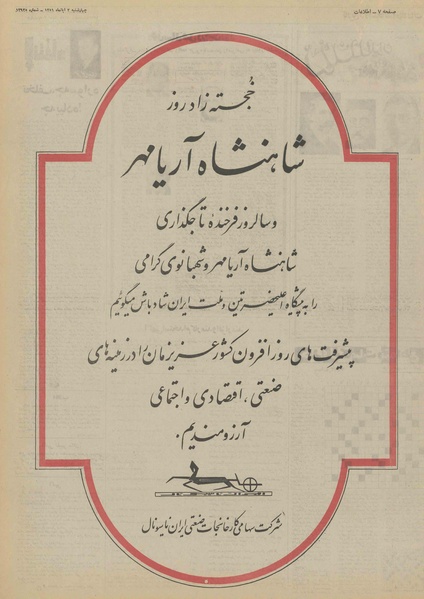 صفحه ۷ - اطلاعات
خجسته زاد روز
شاهنشاه آریامهر
و سالروز فرخنده تاجگذاری
شاهنشاه آریامهر و شهبانوی گرامی
را به پیشگاه اعلیحضرتین و ملت ایران شادباش میگوئیم
پیشرفت‌های روزافزون کشور عزیزمان را در زمینه‌های
صنعتی، اقتصادی و اجتماعی
آرزومندیم.
شرکت سهامی کارخانجات صنعتی ایران ناسیونال